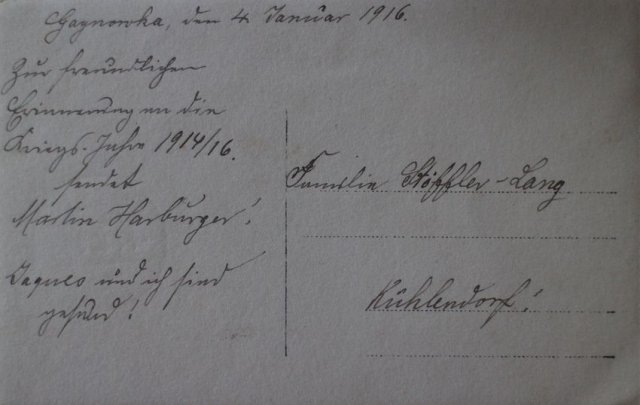 Gagnowka, den 4 Januar 1916.
Zur freundlichen
Erinnerung an die
Kriegs-Jahre 1914/16.
sendet
Martin Harburger!
Jaques und ich sind
gesund!
Familie Stöffler-Lang
Kühlendorf!